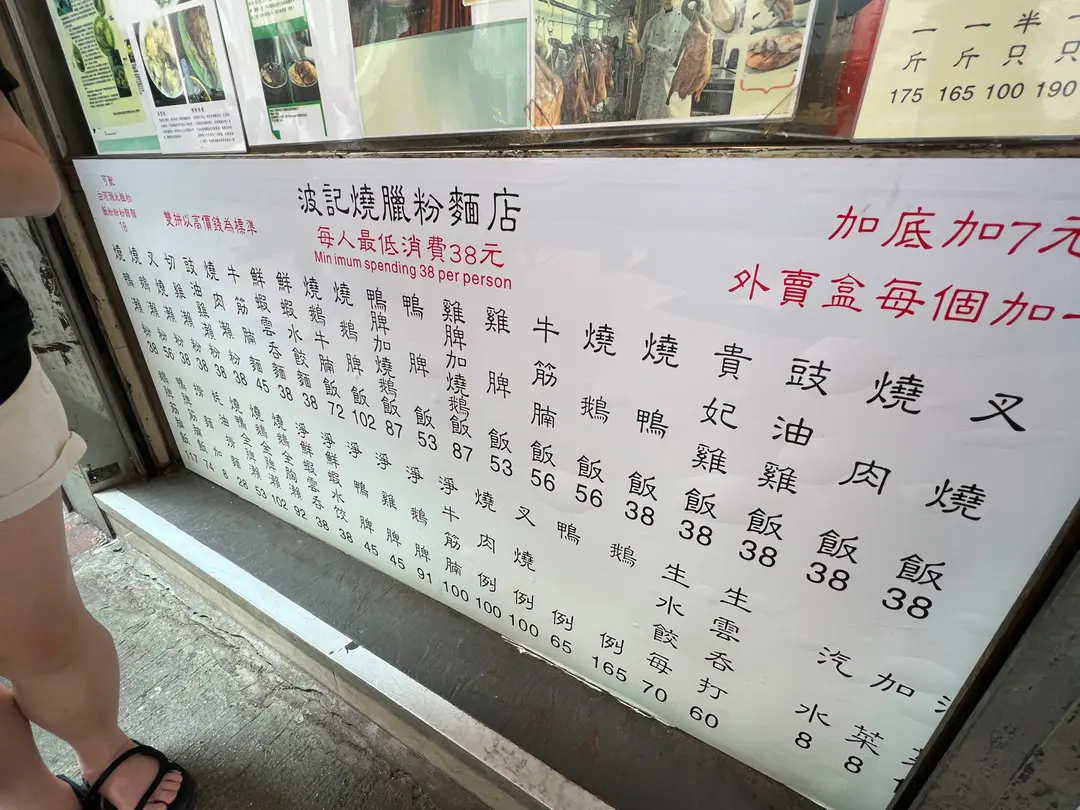 一斤 175
一斤 165
半只 100
一只 190
可配
雙拼以高價錢為標準
波記燒臘粉麵店
每人最低消費38元
Minimum spending 38 per person
加底加7元
外賣盒每個加一
叉燒飯 38
燒肉飯 38
豉油雞飯 38
貴妃雞飯 38
燒鴨飯 38
燒鵝飯 56
牛筋腩飯 56
雞脾飯 53
雞脾加燒鵝飯 87
鴨脾飯 53
鴨脾加燒鵝飯 87
燒鵝脾飯 102
燒鵝牛腩飯 72
鮮蝦水餃麵 38
鮮蝦雲吞麵 38
牛筋腩麵 45
燒肉瀨粉 38
豉油雞瀨粉 38
切雞瀨粉 38
叉燒瀨粉 38
燒鵝瀨粉 56
燒鴨瀨粉 38
加菜 8
汽水 8
生雲吞打 60
生水餃每 70
鵝例 165
鴨例 65
叉燒例 100
燒肉例 100
淨牛筋腩 100
淨鵝脾 91
淨雞脾 45
淨鴨脾 45
淨鮮蝦水餃 38
淨鮮蝦雲吞 38
燒鵝全胸瀨 92
燒鵝全脾瀨 102
燒鴨全脾瀨 53
油撈麵 28
撈麵加 8
鴨脾筋腩飯 74
鵝脾筋腩飯 117